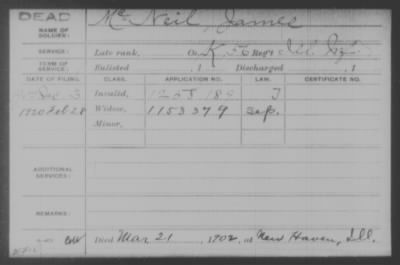 DEAD
Mc Neil, James
NAME OF
SOLDIER:
SERVICE:
Late rank, Co. K, 56 Reg't Ill. Inf.
TERM OF
SERVICE:
Enlisted , 1 Discharged , 1
DATE OF FILING. CLASS. APPLICATION NO. LAW. CERTIFICATE NO.
Invalid,
1920 Feb 28 Widow, 1153379
Minor,
ADDITIONAL
SERVICES:
REMARKS:
Died Mar. 21, 1902, at New Haven, Ill.